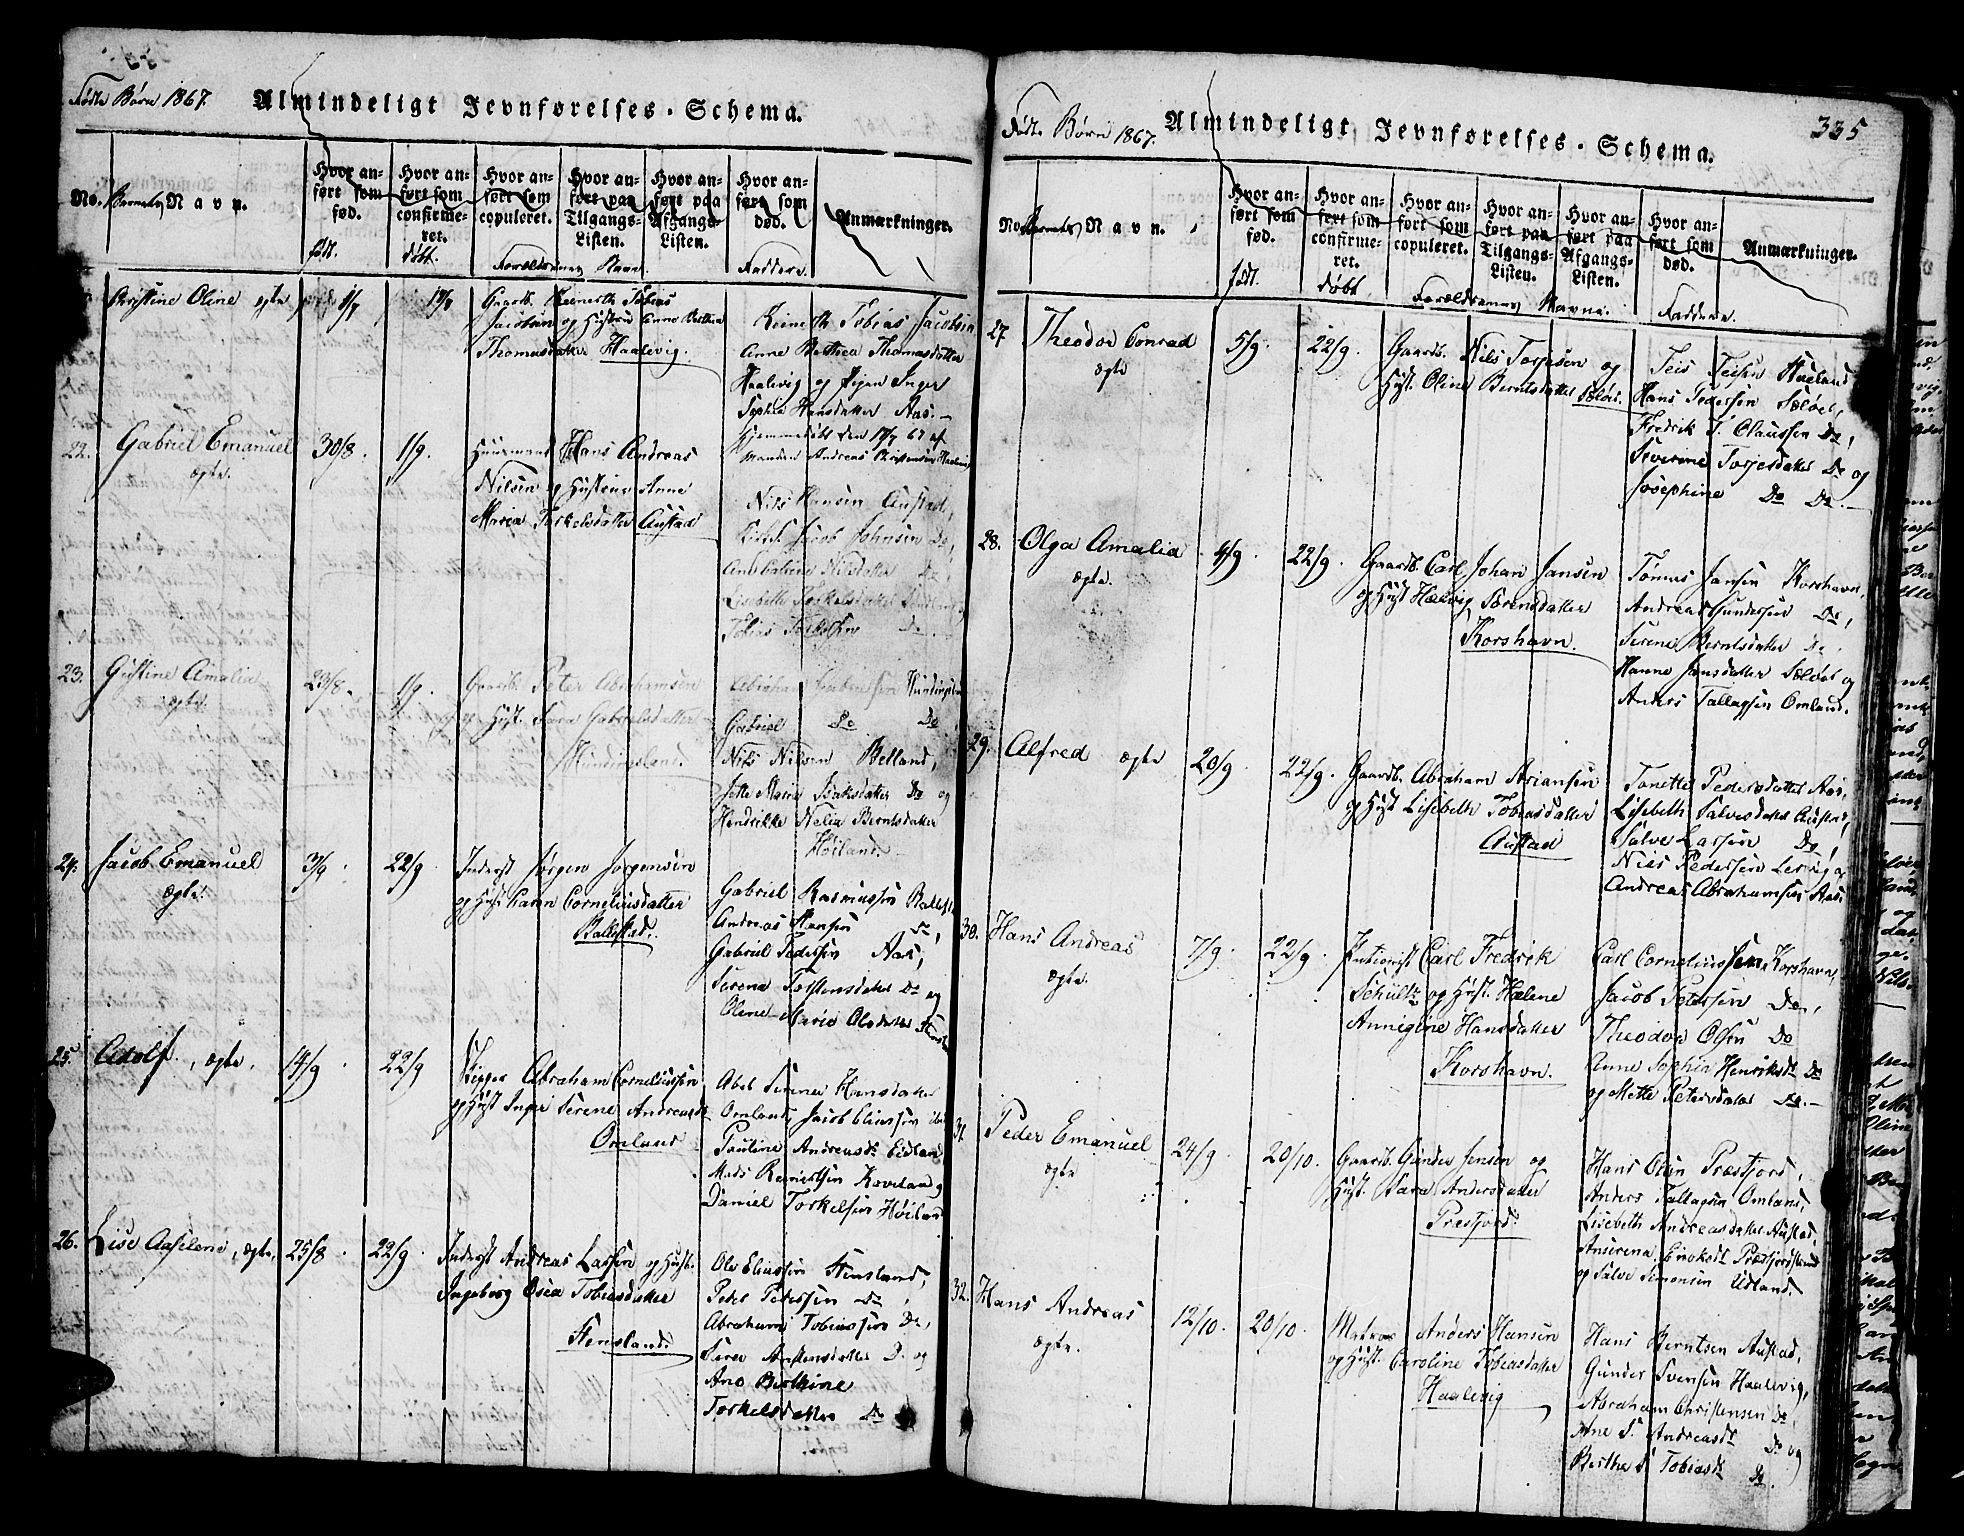 Fødte Børn 1867.
Almindeligt Jevnførelses-Schema.
No.
Barnets Navn.
Hvor anført som fød.
født.
Hvor anført som confirmeret.
døbt.
Hvor anført som copuleret.
Hvor anført paa Tilgangs-Listen.
Hvor anført paa Afgangs-Listen.
Forældrenes Navn.
Hvor anført som død.
Faddere.
Anmærkninger.
Christine Oline ægte
Gaardb. Reinerth Tobias
Jacobsen og Hustru Anne Berthea
Thomasdatter Haalevig.
Reinerth Tobias Jacobsen
Anne Berthea Thomasdatter
Haalevig og Pigen Inger
Sophie Hansdatter Aas.
Hjemmedøbt den
Manden Andreas Christensen Haalevig
22. Gabriel Emanuel
ægte.
30/8. 1/9.
Huusmand Hans Andreas
Nilsen og Hustrue Anne
Maria Torkelsdatter Austad
Nils Hansen Austad,
Jacob Johnsen Do,
Ane Catrine Nilsdatter Do,
Lisebeth Torkelsdatter
Tobias Do
23. Gustine Amalie
ægte.
23/8. 1/9.
Gaardb. Peter Abrahamsen
og Hust. Sara Gabrielsdatter
Hundingsland.
Abraham Hundingsland
Gabriel Do Do
Nils Nilsen Belland,
Jette Marie Isaksdatter Do og
Hendrikke Nelia Berntsdatter
Høiland.
24. Jacob Emanuel
ægte.
3/9. 22/9.
Inderst Jørgen Jørgensen
og Hust Karen Corneliusdatter
Ballestad.
Gabriel Rasmussen
Andreas Hansen Do,
Gabriel Pedersen Aas,
Serena Torstensdatter Do og
Olene Marie Olsdatter
25. Adolf, ægte.
14/9. 22/9
Skipper Abraham Corneliussen
og Hust Inger Serene Andreasdt
Omland
Abel Serine Hansdatter
Omland, Jacob Eliassen
Pauline Andreasdt Eidland
Mads Reinertsen
Daniel Torkelsen Høiland
26. Lise Aaselene, ægte.
25/8. 22/9.
Inderst Andreas Larsen og Hust.
Ingeborg Osea Tobiasdatter
Stensland.
Ole Eliassen Stensland,
Peder Pedersen Do,
Abraham Tobiassen Do,
Sara Do og
Ane Berthine
Torkelsdatter Do
Fødte Børn 1867.
Almindeligt Jevnførelses-Schema.
335
No.
Barnets Navn.
Hvor anført som fød.
født.
Hvor anført som confirmeret.
døbt
Hvor anført som copuleret.
Hvor anført paa Tilgangs-Listen.
Hvor anført paa Afgangs-Listen.
Forældrenes Navne.
Hvor anført som død.
Faddere.
Anmærkninger.
27. Theodor Conrad
ægte
5/9. 22/9.
Gaardb. Nils Torjesen og
Hust. Oline Berntsdatter Sæløer.
Teis Teisen Huseland
Hans Pedersen Sæløer,
Fredrik T. Claussen Do,
Severine Torjesdatter Do og
Josephine Do Do.
28. Olga Amalia
ægte.
4/9. 22/9.
Gaardb. Carl Johan Jansen
og Hust Hælvig Sørensdatter
Korshavn.
Tønnes Jansen Korshavn,
Andreas Gundersen Do,
Serene Berntsdatter Do,
Hanne Jansdatter Sæløer og
Anders Tallagsen Omland.
29. Alfred ægte
20/9. 22/9.
Gaardb. Abraham Ariansen
og Hust Lisebeth Tobiasdatter
Austad
Tonette Pedersdatter Aas,
Lisebeth Salvesdatter Austad,
Salve Larssen Do,
Niels Pedersen Lervig og
Andreas Abrahamsen Aas.
30. Hans Andreas
ægte.
7/9. 22/9.
Carl Fredrik
Schultz og Hust. Hælene
Annigine Hansdatter
Korshavn.
Carl Corneliussen Korshavn,
Jacob Petersen Do,
Theodor Olsen Do
Anne Sophia Henriksdt Do
og Mette Petersdatter Do.
31. Peder Emanuel
ægte
24/9. 20/10.
Gaardb. Gunder Jensen og
Hust. Sara Andersdatter
Presfjord.
Hans Olsen Præstfjord,
Anders Tallagsen Omland,
Lisebeth Andreasdatter Austad,
Anserina Enoksdt
og Salve Simonsen Udland.
32. Hans Andreas
ægte.
12/10. 20/10.
Matros Anders Hansen
og Hust. Caroline Tobiasdatter
Haalevig
Hans Berntsen Austad,
Gunder Svensen Haalevig,
Abraham Christensen Do,
Ane S. Andreasdt Do og
Berthe S. Tobiasdt Do.